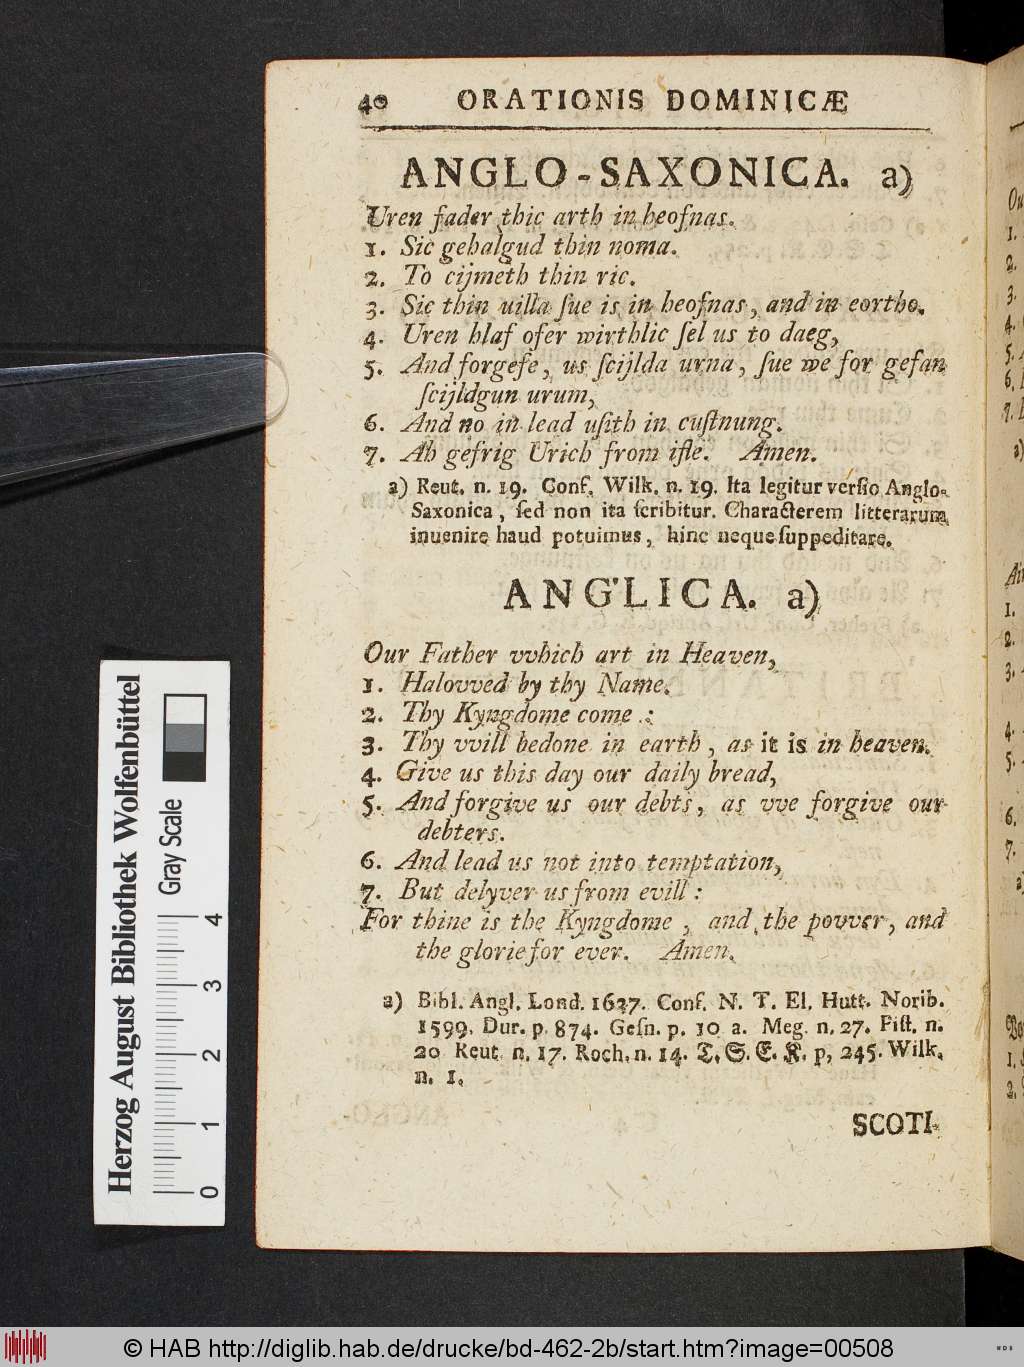 40 ORATIONIS DOMINICÆ
ANGLO-SAXONICA. a)
Uren fader thic arth in heofnas.
1. Sic gehalgud thin noma.
2. To cijmeth thin ric.
3. Sic thin uilla ſue is in heofnas, and in eortho.
4. Uren hlaf ofer wirthlic ſel us to daeg,
5. And forgefe, us ſcijlda urna, ſue we for gefan
ſcijldgun urum,
6. And no in lead uſith in cuſtnung.
7. Ah gefrig Urich from iſle. Amen.
a) Reut. n. 19. Conf. Wilk. n. 19. Ita legitur verſio Anglo-
Saxonica, ſed non ita ſcribitur. Characterem litterarum
inuenire haud potuimus, hinc neque ſuppeditare.
ANGLICA. a)
Our Father vvhich art in Heaven,
1. Halovved by thy Name.
2. Thy Kyngdome come :
3. Thy vvill bedone in earth, as it is in heaven.
4. Give us this day our daily bread,
5. And forgive us our debts, as vve forgive our
debters.
6. And lead us not into temptation,
7. But delyver us from evill :
For thine is the Kyngdome, and the povver, and
the glorie for ever. Amen.
a) Bibl. Angl. Lond. 1637. Conf. N. T. El. Hutt. Norib.
1599. Dur. p. 874. Geſn. p. 10 a. Meg. n. 27. Piſt. n.
20 Reut. n. 17. Roch. n. 14. T. S. E. K. p, 245. Wilk.
n. 1.
SCOTI-
Herzog August Bibliothek Wolfenbüttel
Gray Scale
0 1 2 3 4
© HAB http://diglib.hab.de/drucke/bd-462-2b/start.htm?image=00508